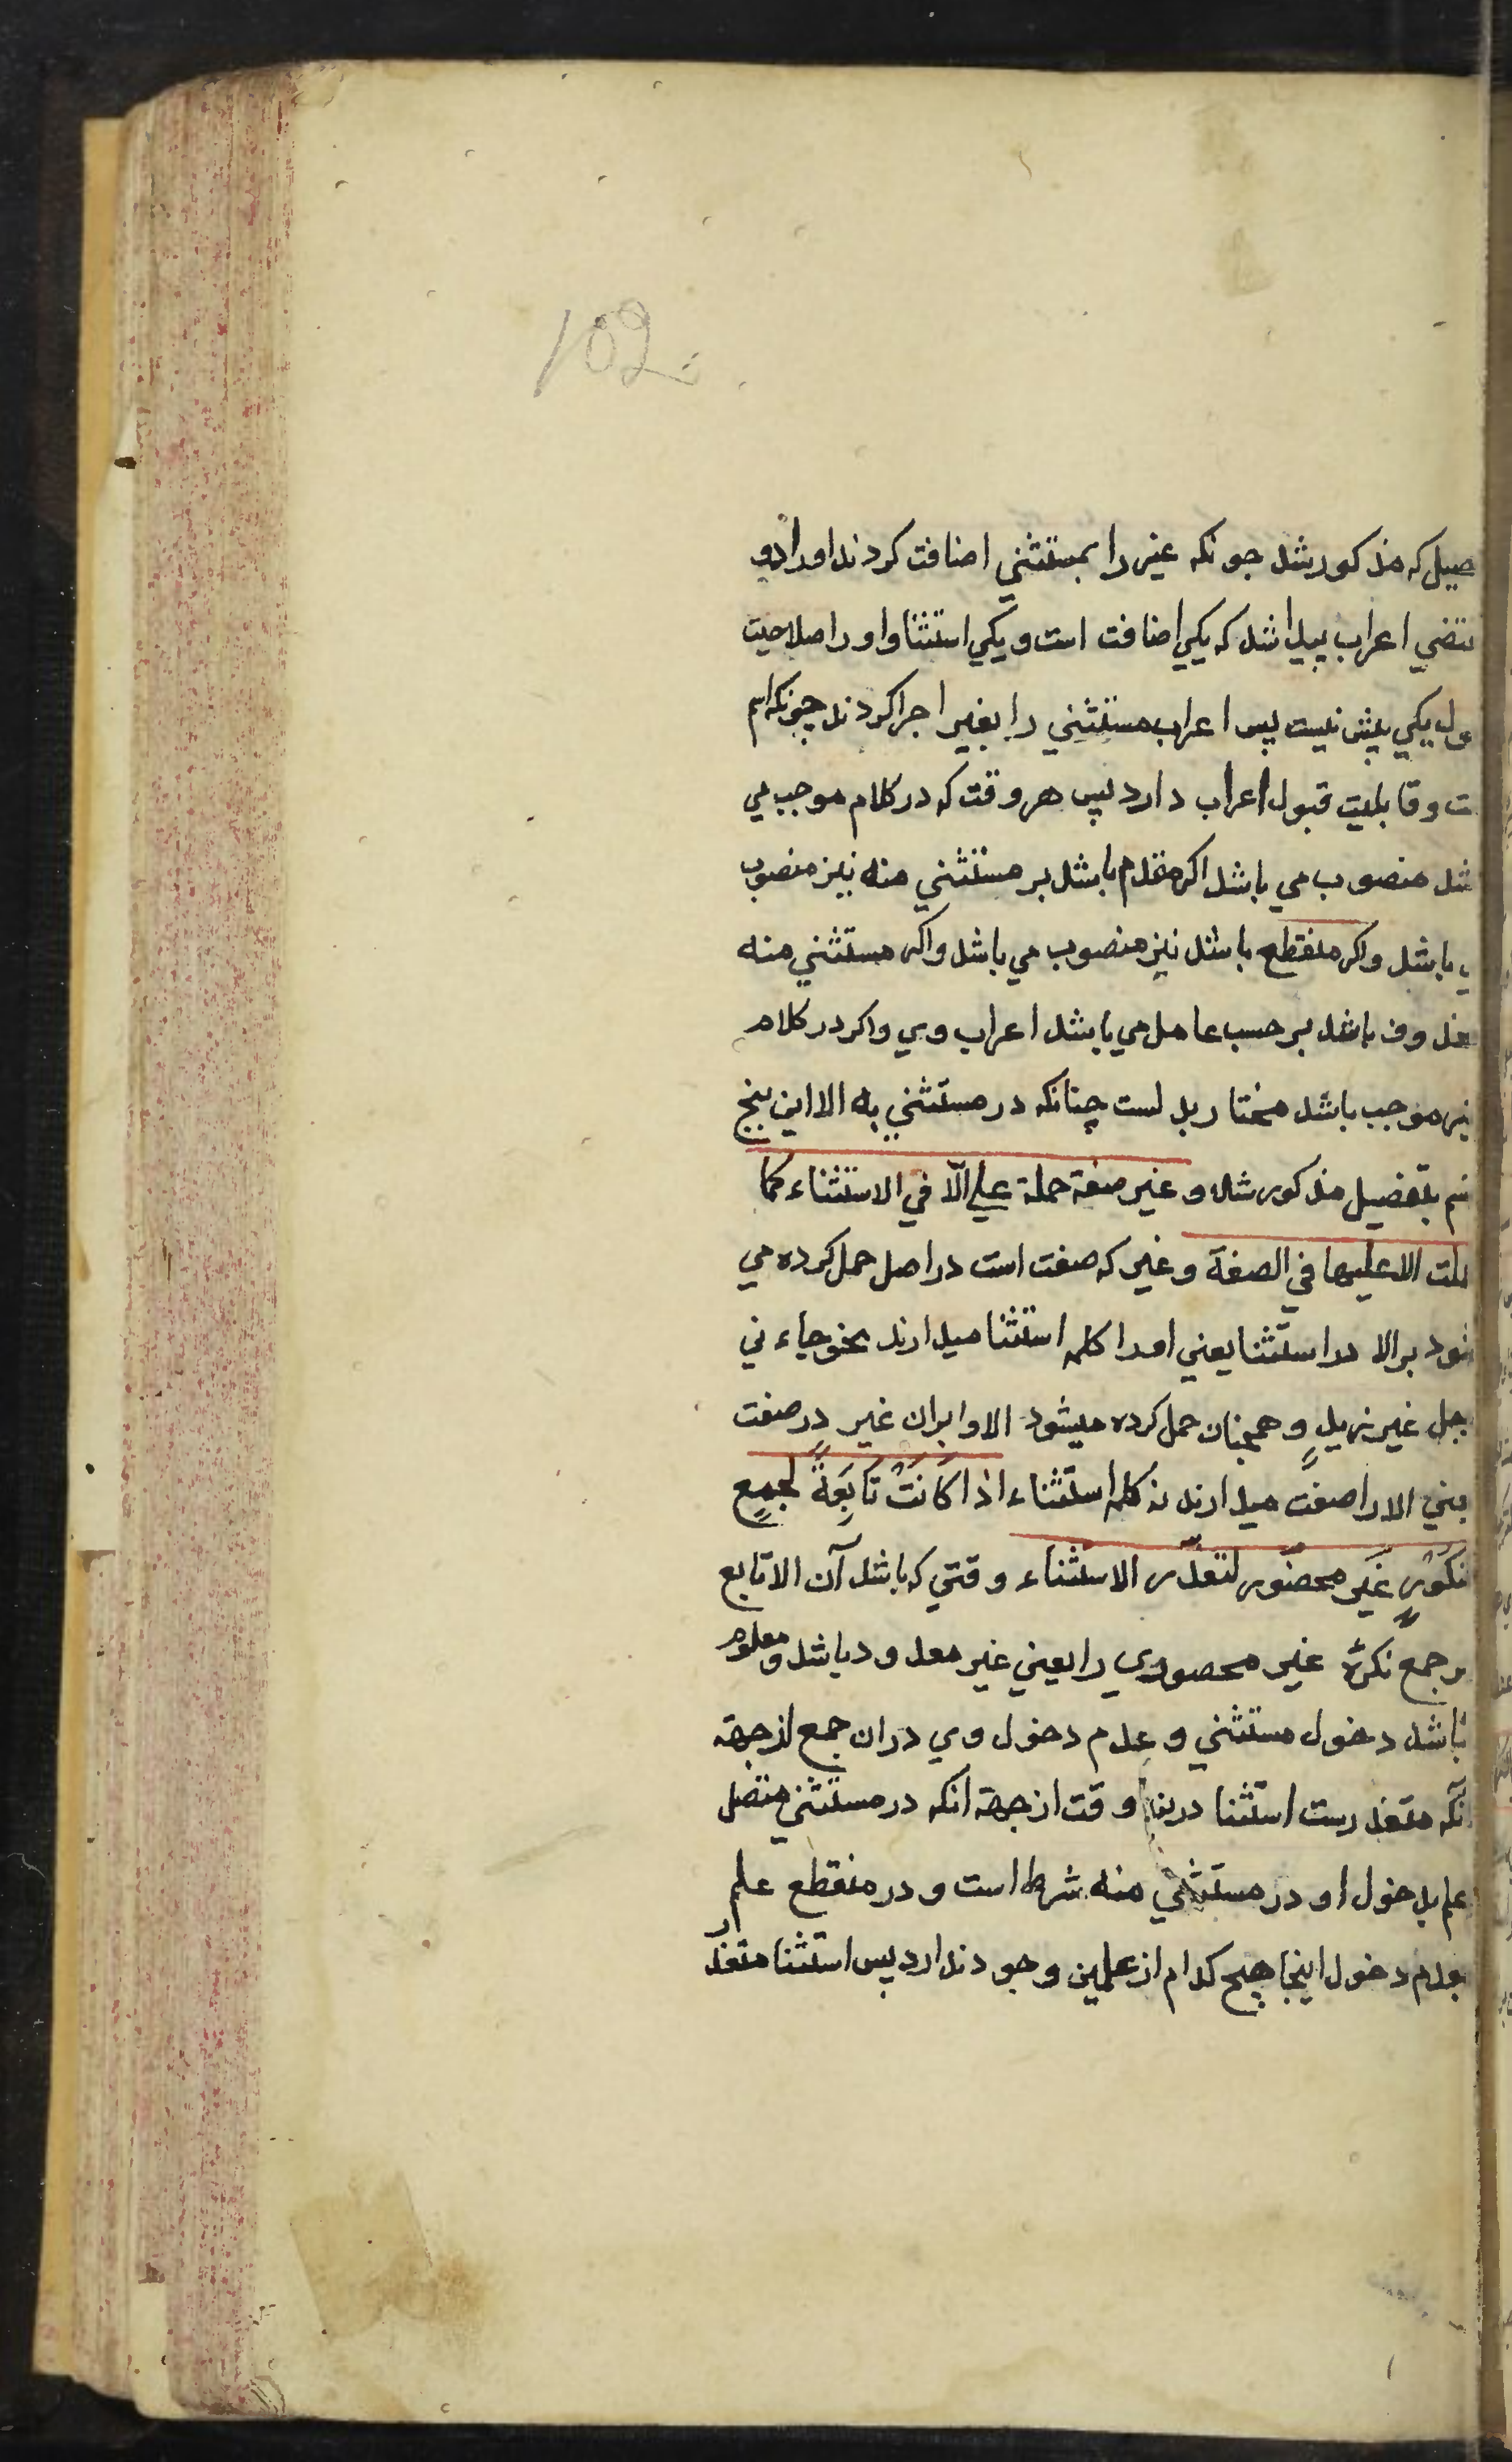 102
صیل که مذکور شد چونکه غیر را بمستثنی اضافت کردند او را دو
اعراب پیدا شد که یکی اضافت است و یکی استثنا و او را صلاحیت
یکی بیش نیست پس اعراب مستثنی را بغیر اجرا کردند چونکه اسم
ت و قابلیت قبول اعراب دارد پس هر وقت که در کلام موجب می
شد منصوب می باشد اکر مقدم باشد بر مستثنی منه نیز منصوب
ی باشد و اکر منقطع باشد نیز منصوب می باشد و اکر مستثنی منه
باشد بر حسب عامل می باشد اعراب وی و اکر در کلام
موجب باشد مختار بدلست چنانکه در مستثنی به الا این پنج
بتفضیل مذکور شد و غیر صفة حملة علي الّا في الاستثناء كما
ملت الا عليها في الصفة و غیر که صفت است در اصل حمل کرده می
شود بر الا در استثنا یعنی او را کلمه استثنا میدارند نحو جاءني
جل غیر زیدٍ و همچنان حمل کرده میشود الا و ابران غیر در صفت
الا را صفت میدارند نه کلمه استثناء اذا كَانَتْ تَابِعَةً لجمعٍ
نكورٍ غَيرِ محصُورٍ لتعذّر الاستثناء وقتی که باشد آن الا تابع
مر جمع نکرۀ غیر محصوری را یعنی غیر معدود باشد و معلوم
نباشد دخول مستثنی و عدم دخول وی دران جمع از جهة
آنکه متعذرست استثنا درین وقت از جهة انکه در مستثنی متصل
علم بدخول او در مستثنی منه شرط است و در منقطع علم
بعدم دخول اینجا هیچ کدام از علمین وجود ندارد پس استثنا متعذر